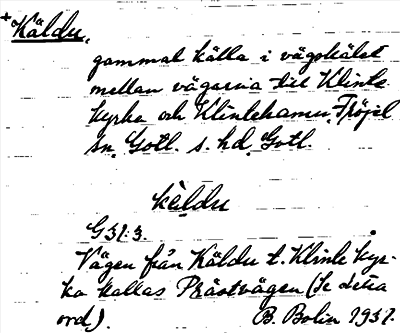 + Käldu,
gammal källa i vägskälet
mellan vägarna till Klinte
kyrka och Klintehamn, Fröjel
sn, Gotl. s. hd, Gotl.
kä̀ldu
G 31:3.
Vägen från Käldu t. Klinte kyr-
ka kallas Prästvägen (Se detta
ord). B. Bolin 1931.